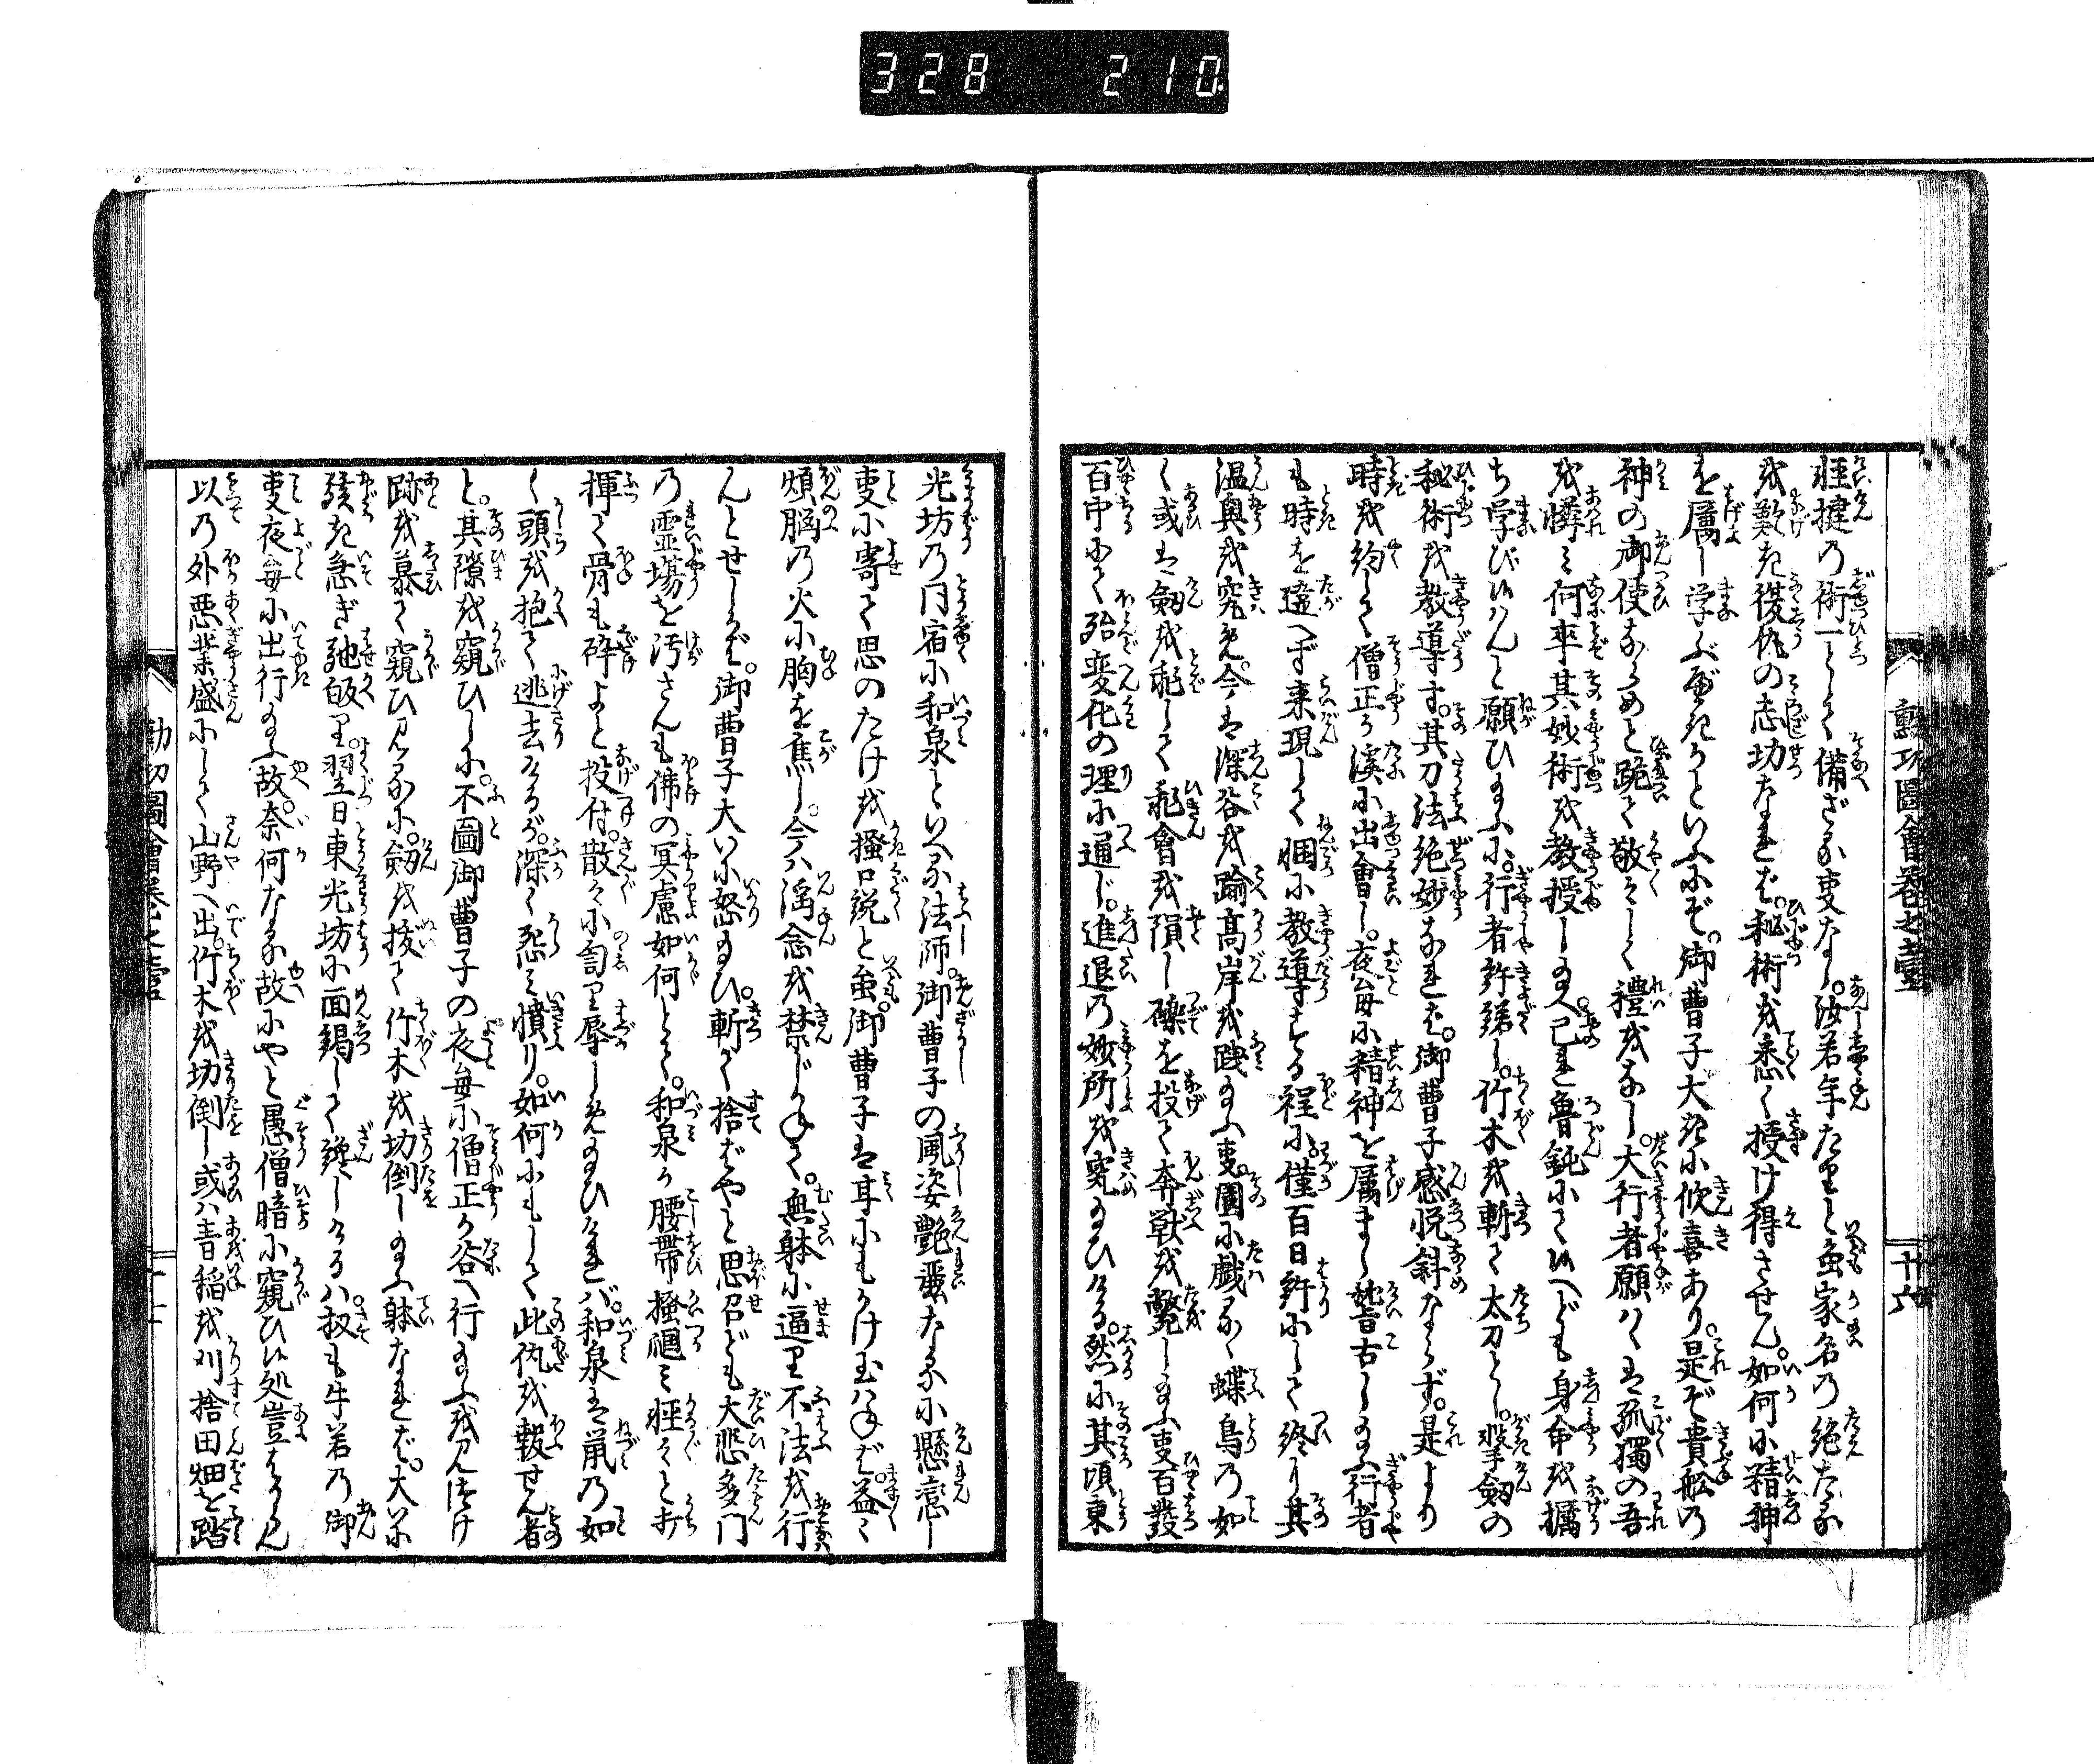 328 210
勲功圖會巻之壹 十六
軽捷の術一として備ざる事なし。汝若年たりと虽家名の絶たる
を歎き復仇の志切なれば。秘術を悉く授け得させん。如何に精神
を厲し学ぶべきかといふにぞ。御曹子大きに欣喜あり。是ぞ貴舩の
神の御使ならめと跪て敬そして禮をなし。大行者願はくは孤獨の吾
を憐み何卒其妙術を教授し給へ。己れ魯鈍にて候へども身命を擲
ち学び候はんと願ひ給ふに。行者許諾し。竹木を斬て太刀とし。撃劔の
秘術を教導す。其刀法絶妙なれば。御曹子感悦斜ならず。是より
時を約して僧正か溪に出會し。夜毎に精神を厲まし稽古し給ふ行者
も時を違へず来現して悃に教導する程に僅百日許にして終り其
温奥を究め。今は深谷を踰高岸を踐給ふ事。園に戯るゝ蝶鳥の如
く或は劔を飛して飛禽を隕し礫を投て奔獣を斃し給ふ事百發
百中にて殆変化の理に通じ。進退の妙所を究給ひける。然に其頃東
光坊の同宿に和泉といへる法師。御曹子の風姿艶麗なるに懸戀し
事に寄て思のたけを掻口説と虽。御曹子は耳にもかけ玉はねば。益〻
煩脳の火に胸を焦し。今ハ淫念を禁じかねて。無躰に逼り不法を行
んとせしかば。御曹子大いに怒給ひ。斬て捨ばやと思召ども大悲多門
の霊場を汚さんも佛の冥慮如何として。和泉か腰帯掻廻み軽〻と打
揮て骨も砕よと投付。散〻に訇り辱しめ給ひければ。和泉は鼠の如
く頭を抱て逃去けるが。深く怨み憤り。如何にもして此仇を報せん者
と。其隙を窺ひしに。不圖御曹子の夜毎に僧正か谷へ行給ふを見附け
跡を慕て窺ひ見るに。劔を抜て竹木を切倒し給ふ躰なれば。大いに
駭き急ぎ馳皈り。翌日東光坊に面謁して讒しけるハ。扨も牛若の御
事夜毎に出行給ふ故。奈何なる故にやと愚僧暗に窺ひ候処豈はからん
以の外悪業盛にして山野へ出。竹木を切倒し或ハ青稲を刈捨田畑を踏
勲功圖會巻之壹